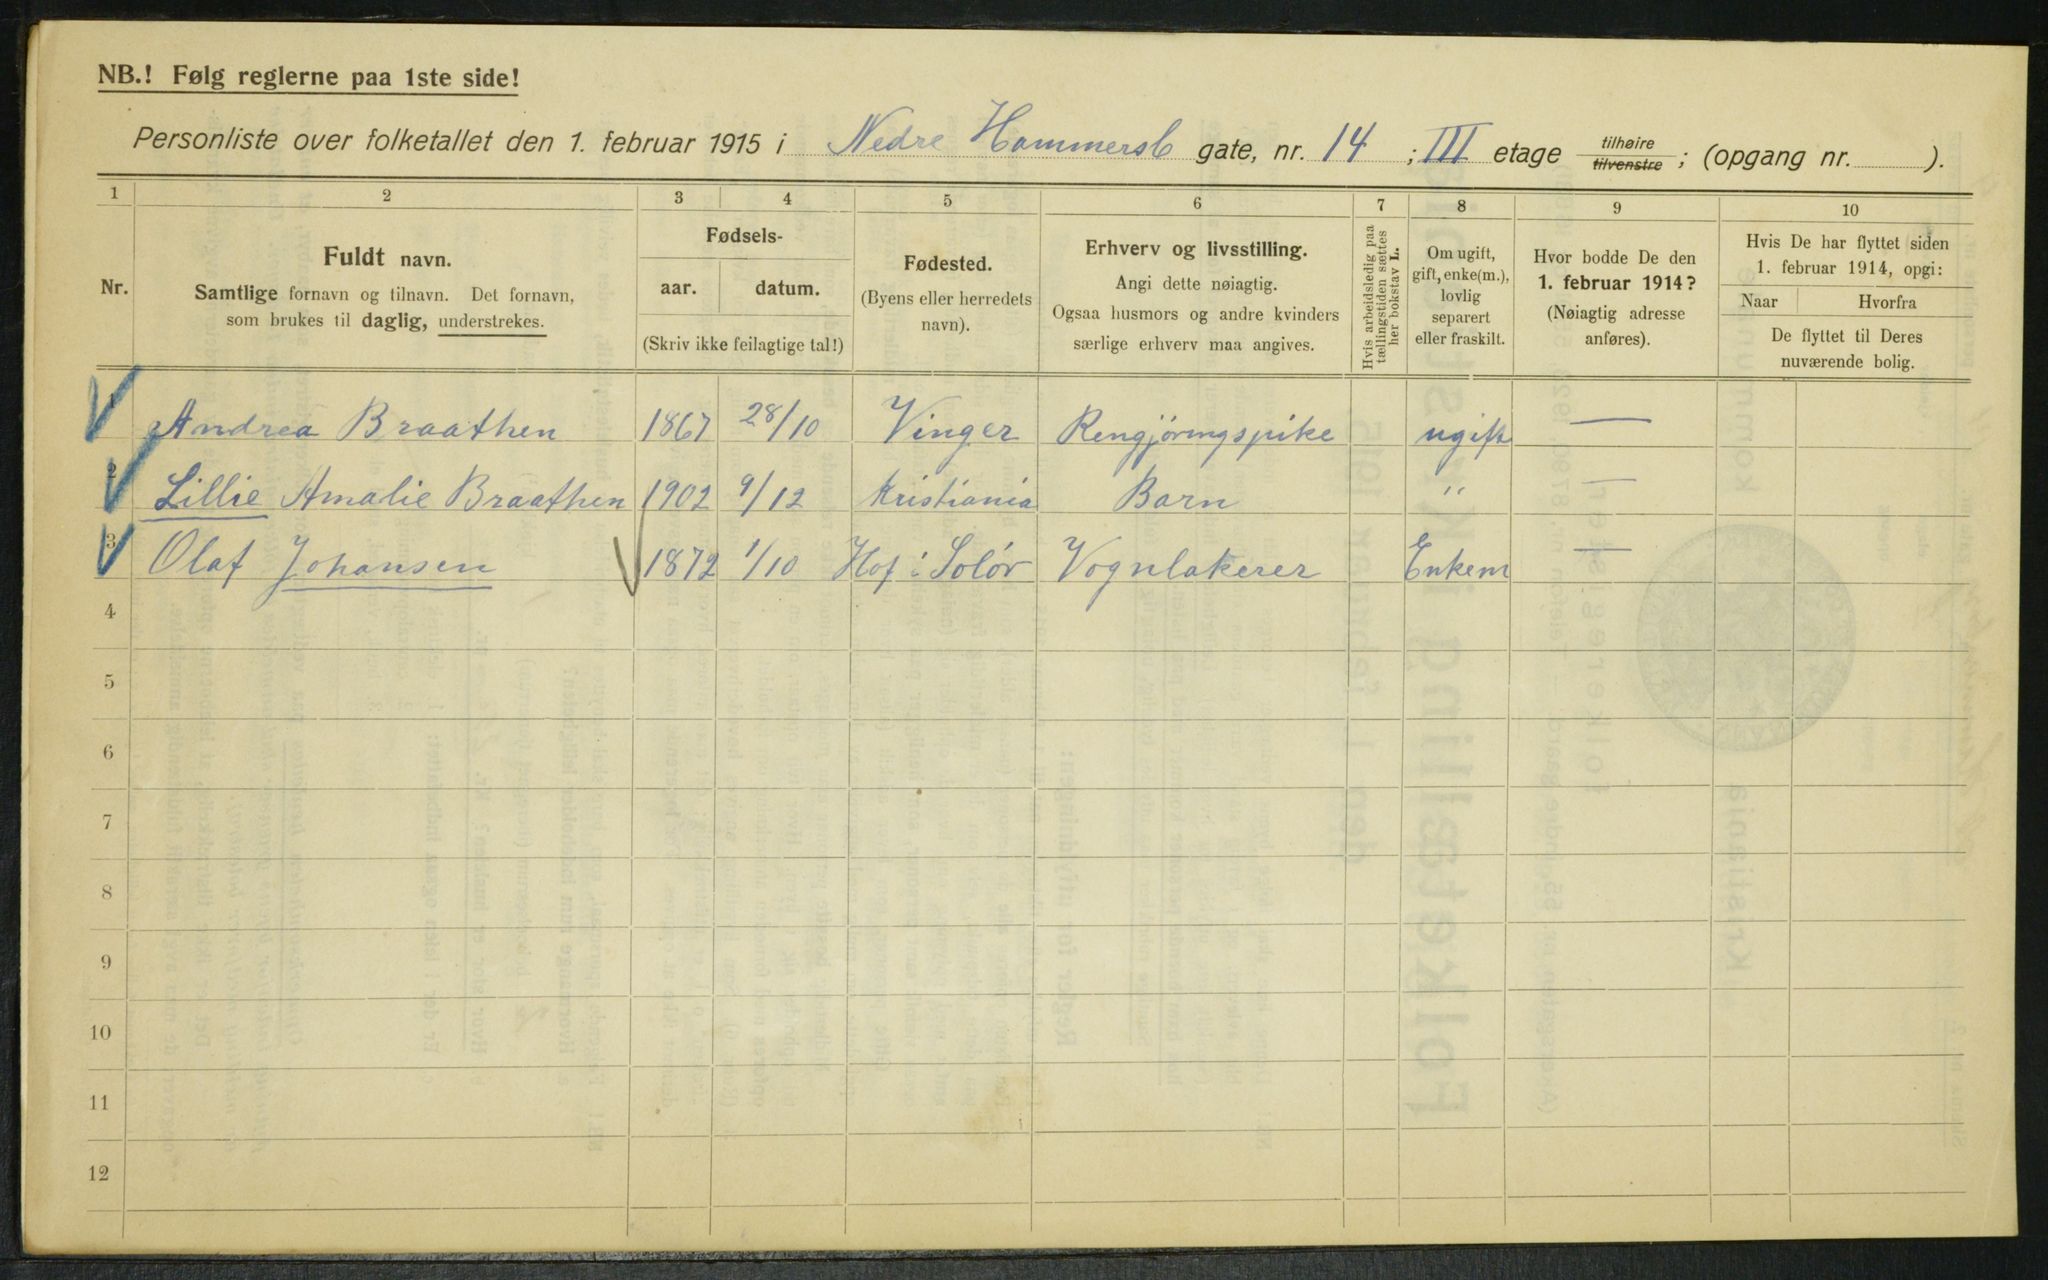 NB.! Følg reglerne paa 1ste side!
Personliste over folketallet den 1. februar 1915 i Nedre Hammersb gate, nr. 14 ; III etage tilhøire tilvenstre ; (opgang nr. ).
1 2 3 4 5 6 7 8 9 10
Nr.
Fuldt navn.
Samtlige fornavn og tilnavn. Det fornavn,
som brukes til daglig, understrekes.
Fødsels-
aar. datum.
(Skriv ikke feilagtige tal!)
Fødested.
(Byens eller herredets
navn).
Erhverv og livsstilling.
Angi dette nøiagtig.
Ogsaa husmors og andre kvinders
særlige erhverv maa angives.
Hvis arbeidsledig paa
tællingstiden sættes
her bokstav L.
Om ugift,
gift, enke(m.),
lovlig
separert
eller fraskilt.
Hvor bodde De den
1. februar 1914?
(Nøiagtig adresse
anføres).
Hvis De har flyttet siden
1. februar 1914, opgi:
Naar Hvorfra
De flyttet til Deres
nuværende bolig.
1 Andrea Braathen 1867 28/10 Vinger Rengjøringspike ugift —
2 Lillie Amalie Braathen 1902 9/12 Kristiania Barn " —
3 Olaf Johansen 1872 1/10 Hof i Solør Vognlakerer Enkem —
4
5
6
7
8
9
10
11
12